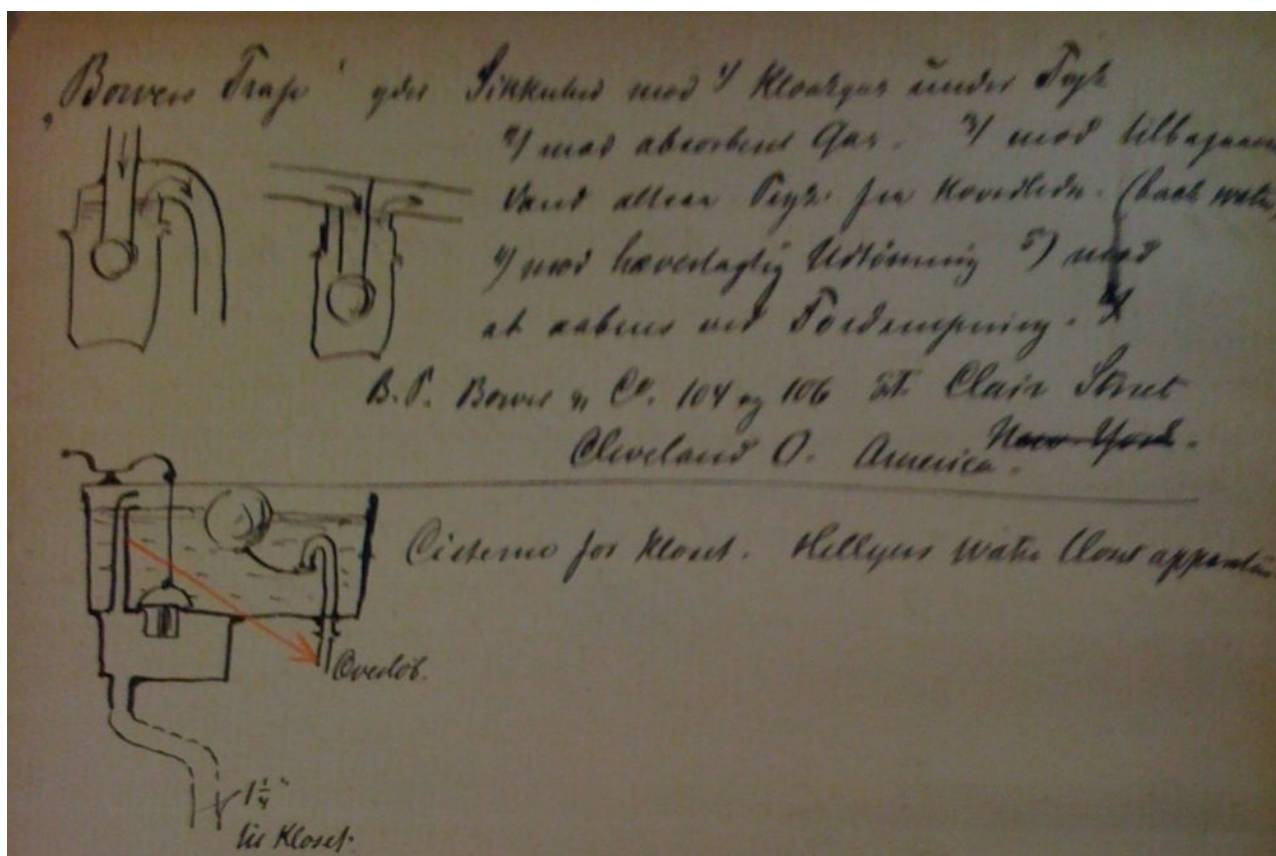 „Bowers Trap" yder Sikkerhed mod 1/ Kloakgas under Tryk
2/ mod absorberet Gas. 3/ mod
Vand alene Tryk fra Hovedledn. (back water
4/ mod hævertagtig Udtömning 5) mod
at aabnes ved Fordampning.
B. P. Bower & Co. 104 og 106 St. Clair Street
Cleveland O. America. New York.
Cisterne for Kloset. Hellyers water Closet
Overlöb.
1 1/4"
til Kloset.